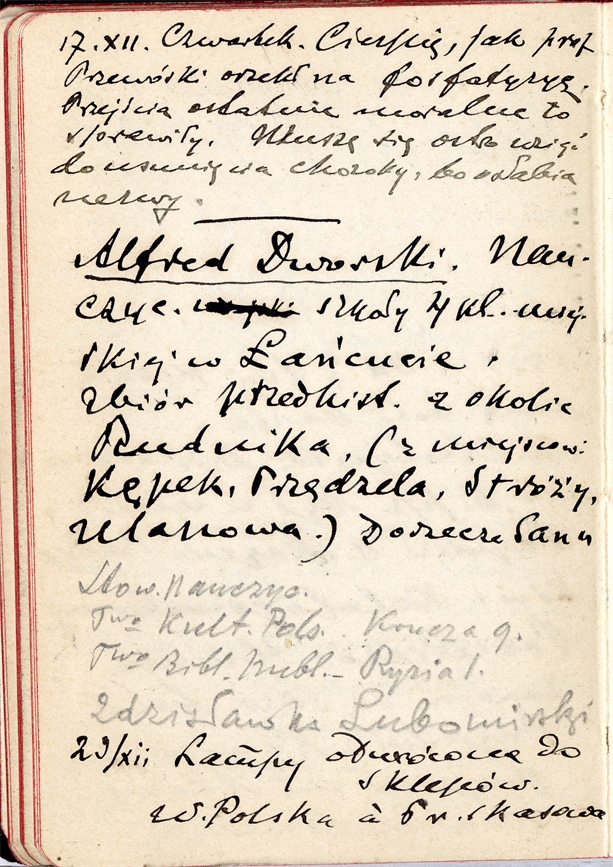 17.XII. Czwartek. Cierpię, jak prof
Przewóski orzekł na fosfatyzyę.
Przejścia ostatnie moralne to
sprawiły. Muszę się ostro wziąć
do usunięcia choroby, bo osłabia
nerwy.
Alfred Dworski. Nau-
czyc. szkoły 4 kl. miej-
skiej w Łańcucie.
zbiór przedhist. z okolic
Rudnika, (z miejscow:
Kępek, Przędzela, Stróży,
Ulanowa.) Dorzecze Sanu
Stow. Nauczyc.
Two Kult. Pols. Krucza 9.
Two Bibl. Publ. – Rysia 1.
Zdzisławka Lubomirski
23/xii Lampy odwrócone do
sklepów.
W. Polska à